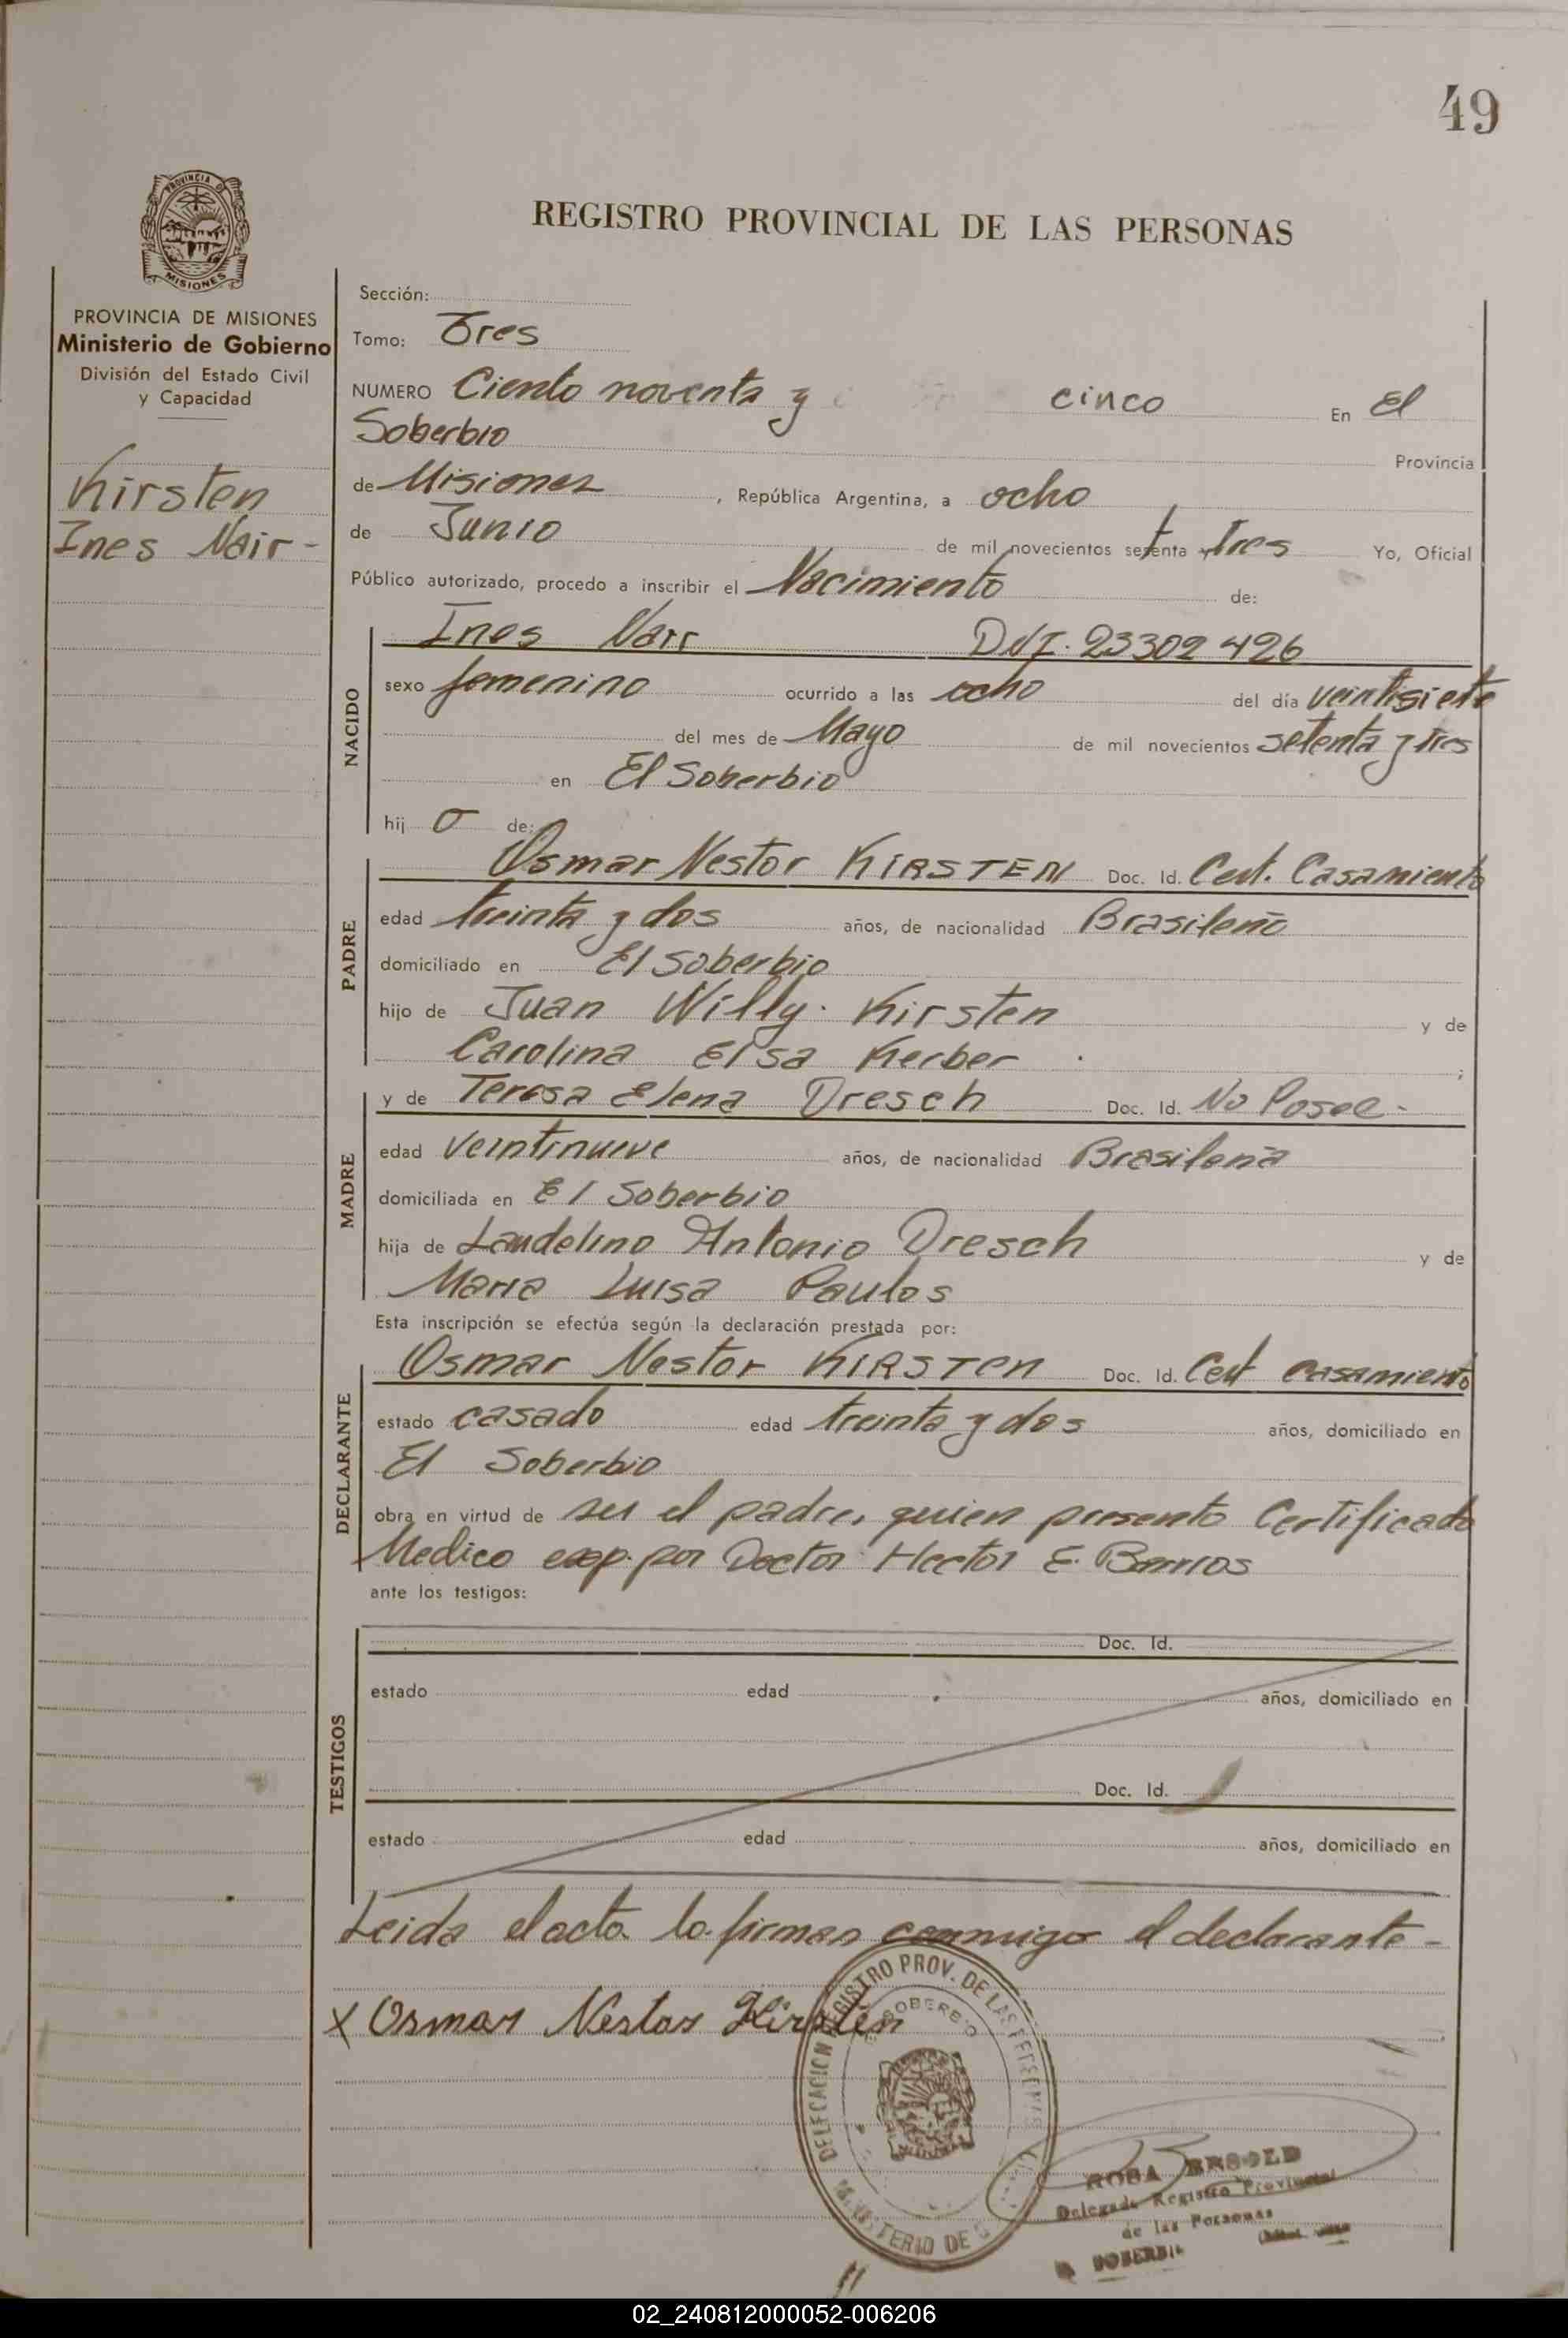 49
PROVINCIA DE
MISIONES
REGISTRO PROVINCIAL DE LAS PERSONAS
PROVINCIA DE MISIONES
Ministerio de Gobierno
División del Estado Civil
y Capacidad
Kirsten
Ines Nair -
Sección:
Tomo: Tres
NUMERO Ciento noventa y cinco En El
Soberbio Provincia
de Misiones, República Argentina, a ocho
de Junio de mil novecientos setenta y tres Yo, Oficial
Público autorizado, procedo a inscribir el Nacimiento de:
NACIDO
Ines Nair DNI. 23302426
sexo femenino ocurrido a las ocho del día veintisiete
del mes de Mayo de mil novecientos setenta y tres
en El Soberbio
hij a de:
PADRE
Osmar Nestor KIRSTEN Doc. Id. Cert. Casamiento
edad treinta y dos años, de nacionalidad Brasileño
domiciliado en El Soberbio
hijo de Juan Willy Kirsten y de
Carolina Elsa Kerber ;
MADRE
y de Teresa Elena Dresch Doc. Id. No Posee -
edad veintinueve años, de nacionalidad Brasileña
domiciliada en El Soberbio
hija de Laudelino Antonio Dresch y de
Maria Luisa Paulos
Esta inscripción se efectúa según la declaración prestada por:
DECLARANTE
Osmar Nestor KIRSTEN Doc. Id. Cert Casamiento
estado casado edad treinta y dos años, domiciliado en
El Soberbio
obra en virtud de ser el padre, quien presento Certificado
Medico exp. por Doctor Hector E. Barrios
ante los testigos:
TESTIGOS
Doc. Id.
estado edad años, domiciliado en
Doc. Id.
estado edad años, domiciliado en
Leida el acta la firman conmigo el declarante -
X Osmar Nestor Kirsten
DELEGACION REGISTRO PROV. DE LAS PERSONAS
EL SOBERBIO
MINISTERIO DE G
ROSA BESOLD
Delegada Registro Provincial
de las Personas
SOBERBIO
02_240812000052-006206